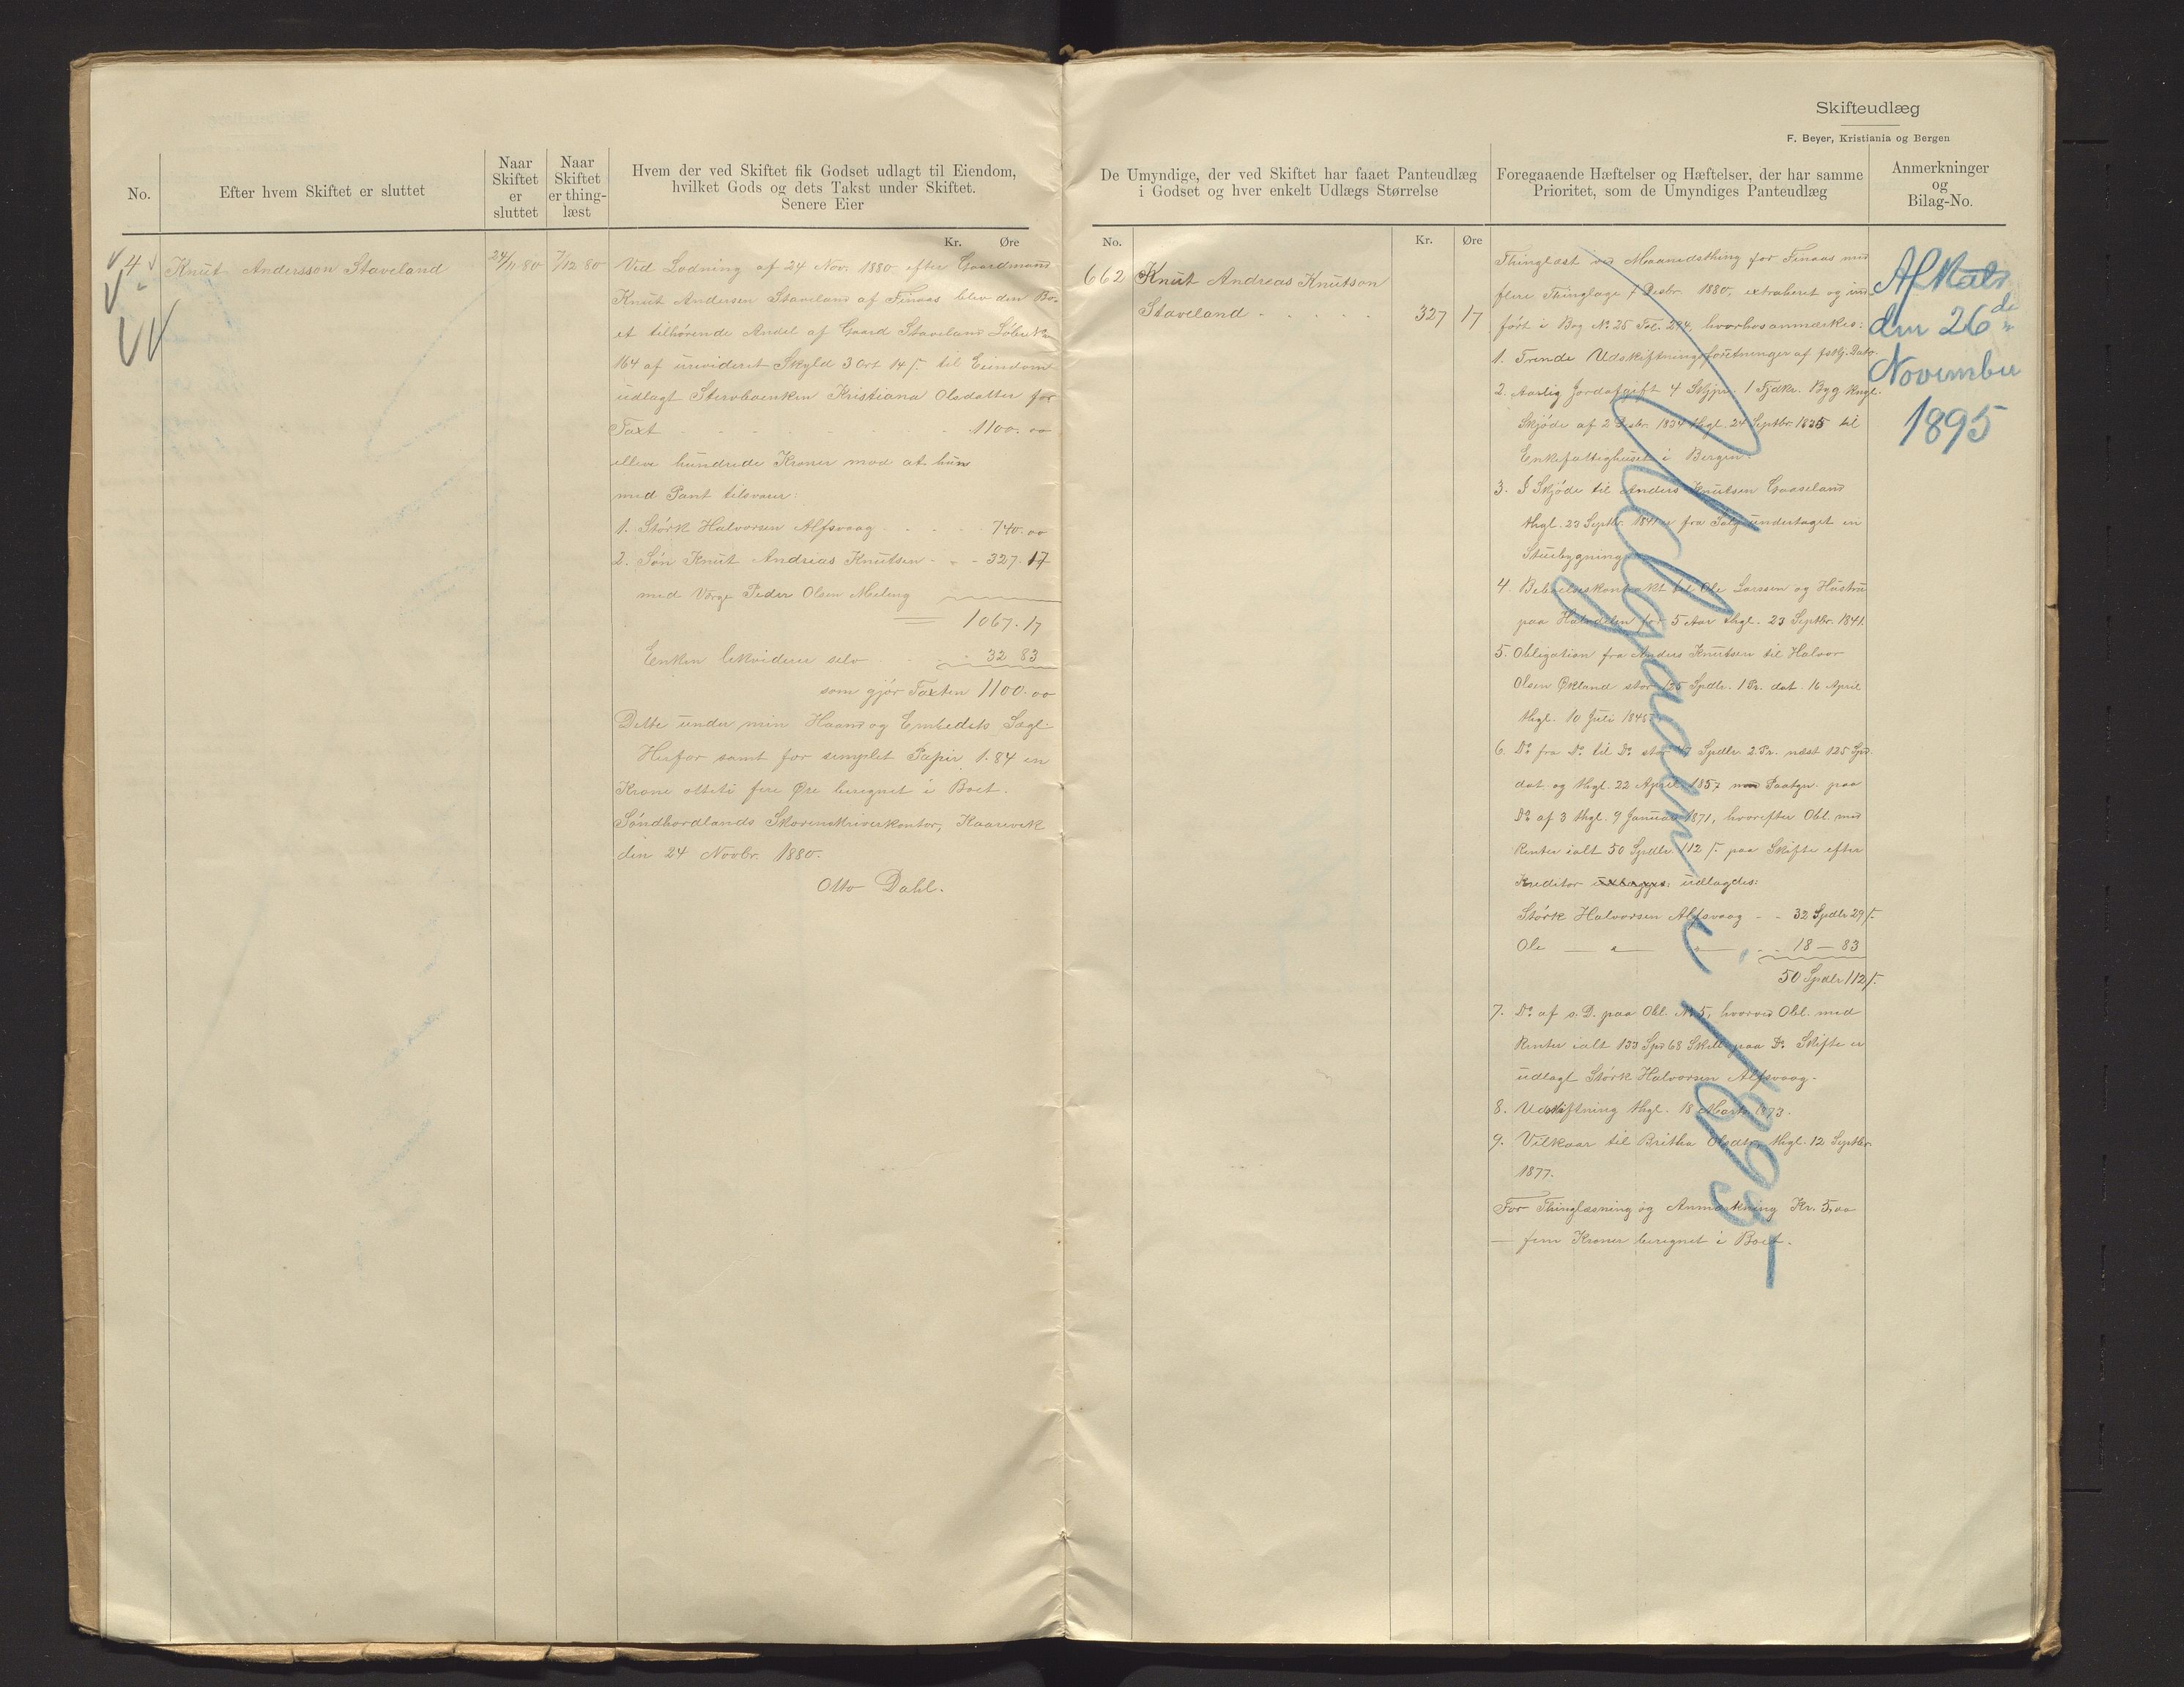 Skifteudlæg
F. Beyer, Kristiania og Bergen
No.
Efter hvem Skiftet er sluttet
Naar
Skiftet
er
sluttet
Naar
Skiftet
er thing-
læst
Hvem der ved Skiftet fik Godset udlagt til Eiendom,
hvilket Gods og dets Takst under Skiftet.
Senere Eier
Kr. Øre
4
Knut Andersson Staveland
24/11 80
7/12 80
Ved Lodning af 24 Nov. 1880 efter Gaardmand
Knut Andersen Staveland af Finaas blev den Bo-
et tilhørende Andel af Gaard Staveland Løbe No
164 af urevideret Skyld 3 Ort 14 s. til Eiendom
udlagt Stervboenken Kristiana Olsdatter for
Taxt 1100.00
elleve hundrede Kroner mod at hun
med Pant tilsvarer:
1. Størk Halvorsen Alfsvaag 740.00
2. Søn Knut Andreas Knutsen 327.17
med Værge Peder Olsen Meling
1067.17
Enken likviderer selv 32 83
som gjør Taxten 1100.00
Dette under min Haand og Embedets Segl.
Herfor samt for simplet Papir 1.84 en
Krone otteti fire Øre beregnet i Boet.
Søndhordlands Skriverkontor,
den 24 Novbr. 1880.
Otto Dahl.
De Umyndige, der ved Skiftet har faaet Panteudlæg
i Godset og hver enkelt Udlægs Størrelse
No. Kr. Øre
662 Knut Andreas Knutson
Staveland 327 17
Foregaaende Hæftelser og Hæftelser, der har samme
Prioritet, som de Umyndiges Panteudlæg
Thinglæst ved Maanedsthing for Finaas med
flere Thinglage 7 Desbr. 1880, extraheret og ind-
ført i Bog No 25 Fol. 294, hvorhos anmærkes:
1. Trende Udskiftningsforretninger af forskj. Dato.
2. Aarlig Jordafgift 4 1 Fjdkr. Byg
Skjøde af 2 Desbr. 1834 thgl. 24 Septbr. 1835 til
Enkefattighuset i Bergen.
3. I Skjøde til Anders Knutsen Gaaseland
thgl. 23 Septbr. 1841 er fra Salg undtaget en
Stuebygning.
4. til Ole Larsen og Hustru
paa Halvdelen for 5 Aar thgl. 23 Septbr. 1841.
5. Obligation fra Anders Knutsen til Halvor
Olsen Økland stor 125 Spdlr. 1 Pr. dat. 16 April
thgl. 10 Juli 1845.
6. Do fra Do til Do stor Spdlr. 2 Pr. næst 125 Spd.
dat og thgl. 22 April 1857 med Paategn. paa
Do af 3 thgl. 9 Januar 1871, hvorefter Obl. med
Renter ialt 50 Spdlr. 112 s. paa Skifte efter
Kreditor udlagdes:
Størk Halvorsen Alfsvaag - - 32 Spdlr 29 s.
Ole — " — 18 — 83
50 Spdlr 112 s.
7. Do af s. D. paa Obl. No 5, hvorved Obl. med
Renter ialt 133 Spd 68 Skill. paa Do Skifte er
udlagt Størk Halvorsen Alfsvaag.
8. Udskiftning thgl. 18 Marts 1873.
9. Vilkaar til Britha Olsdtr. thgl. 12 Septbr.
1877.
For Thinglæsning og Anmærkning Kr. 5,00
— fem Kroner beregnet i Boet.
Udgaaen i 1895
Anmerkninger
og
Bilag-No.
Afkald
den 26de
November
1895